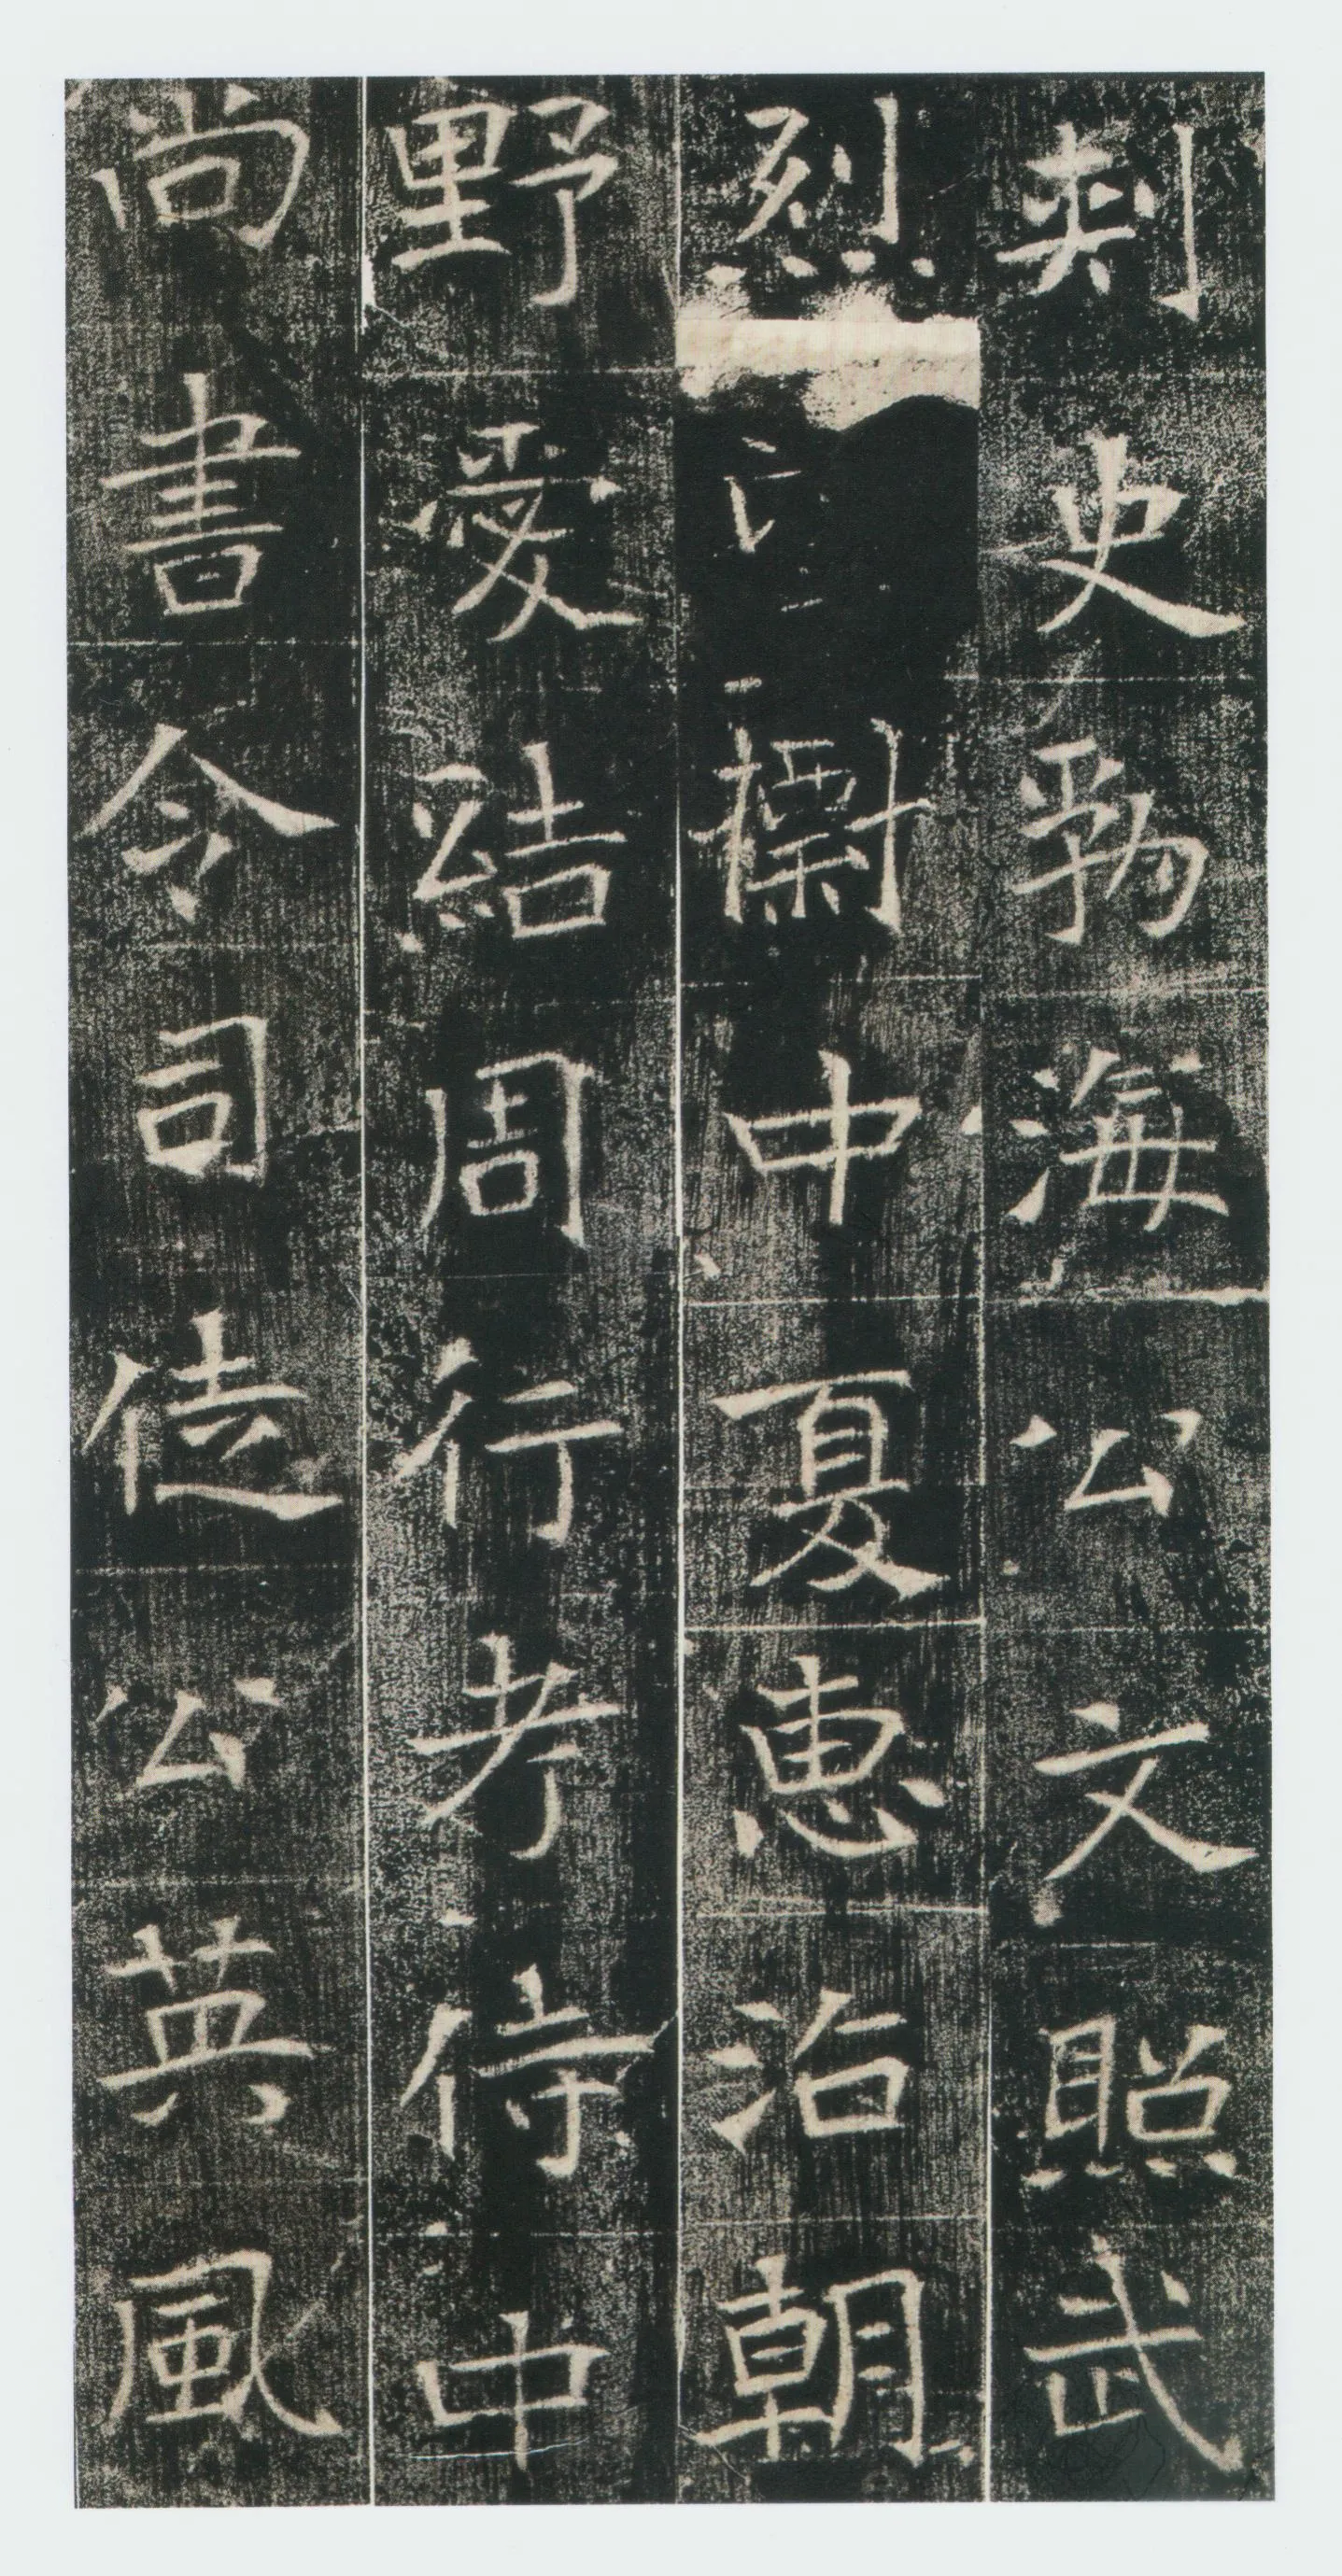 刺史勃海公文照武
烈中夏惠治朝
野愛結周行考侍中
尚書令司徒公英風